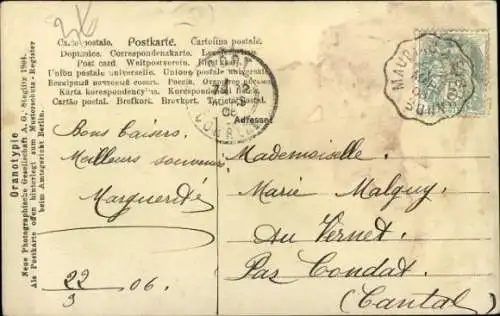 Carte postale. Postkarte. Cartolina postale.
Dopisnice. Correspondenzkarte. Levelező-Lap.
Post card. Weltpostverein. Brefkort.
Union postale universelle. Unione postale universale.
Karta korespondencyjna. Korespondenční lístek.
Cartão postal. Brefkort. Brevkort. Tarjeta Postal.
Adressat
Bons baisers.
Meilleurs souvenirs
Marguerite
22
3
06.
Mademoiselle.
Marie Malguy.
Au Vernet.
Par Condat.
(Cantal)
Oranotypie
Neue Photographische Gesellschaft A. G., Steglitz 1904.
Als Postkarte offen hinterlegt zum Musterschutz-Register
beim Amtsgericht Berlin.